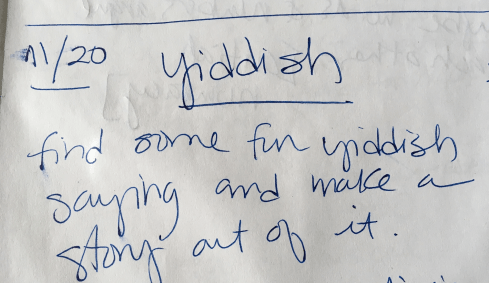 11/20 Yiddish
find some fun yiddish
saying and make a
story out of it.